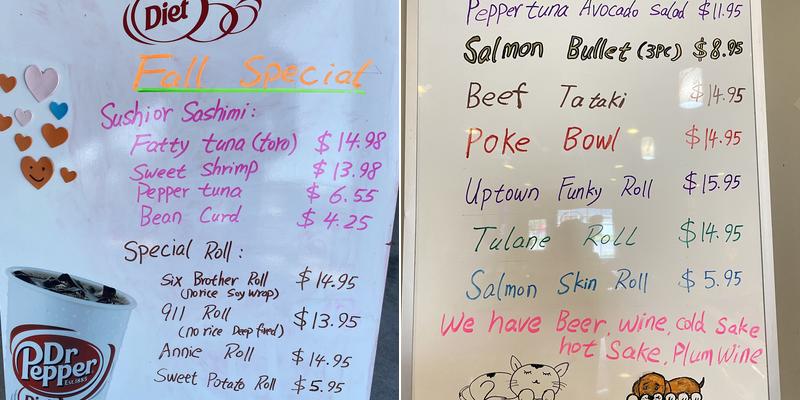 Diet
Fall Special
Sushi or Sashimi:
Fatty tuna (toro) $14.98
Sweet shrimp $13.98
Pepper tuna $6.55
Bean Curd $4.25
Special Roll:
Six Brother Roll $14.95
(no rice Soy wrap)
911 Roll $13.95
(no rice Deep fried)
Annie Roll $14.95
Sweet Potato Roll $5.95
Dr
Pepper
Est. 1885
Diet
Pepper tuna Avocado Salad $11.95
Salmon Bullet (3pc) $8.95
Beef Tataki $14.95
Poke Bowl $14.95
Uptown Funky Roll $15.95
Tulane Roll $14.95
Salmon Skin Roll $5.95
We have Beer, wine, cold sake
hot Sake, Plum Wine